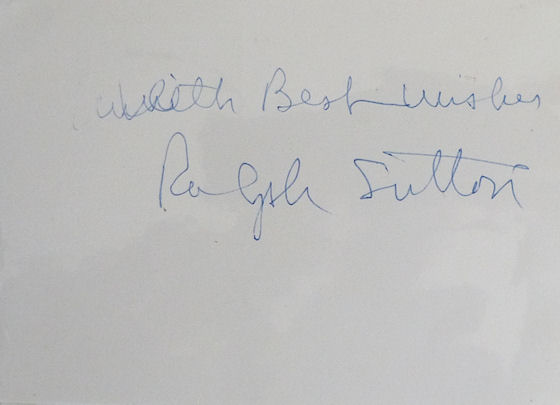 With Best Wishes
Ralph Sutton